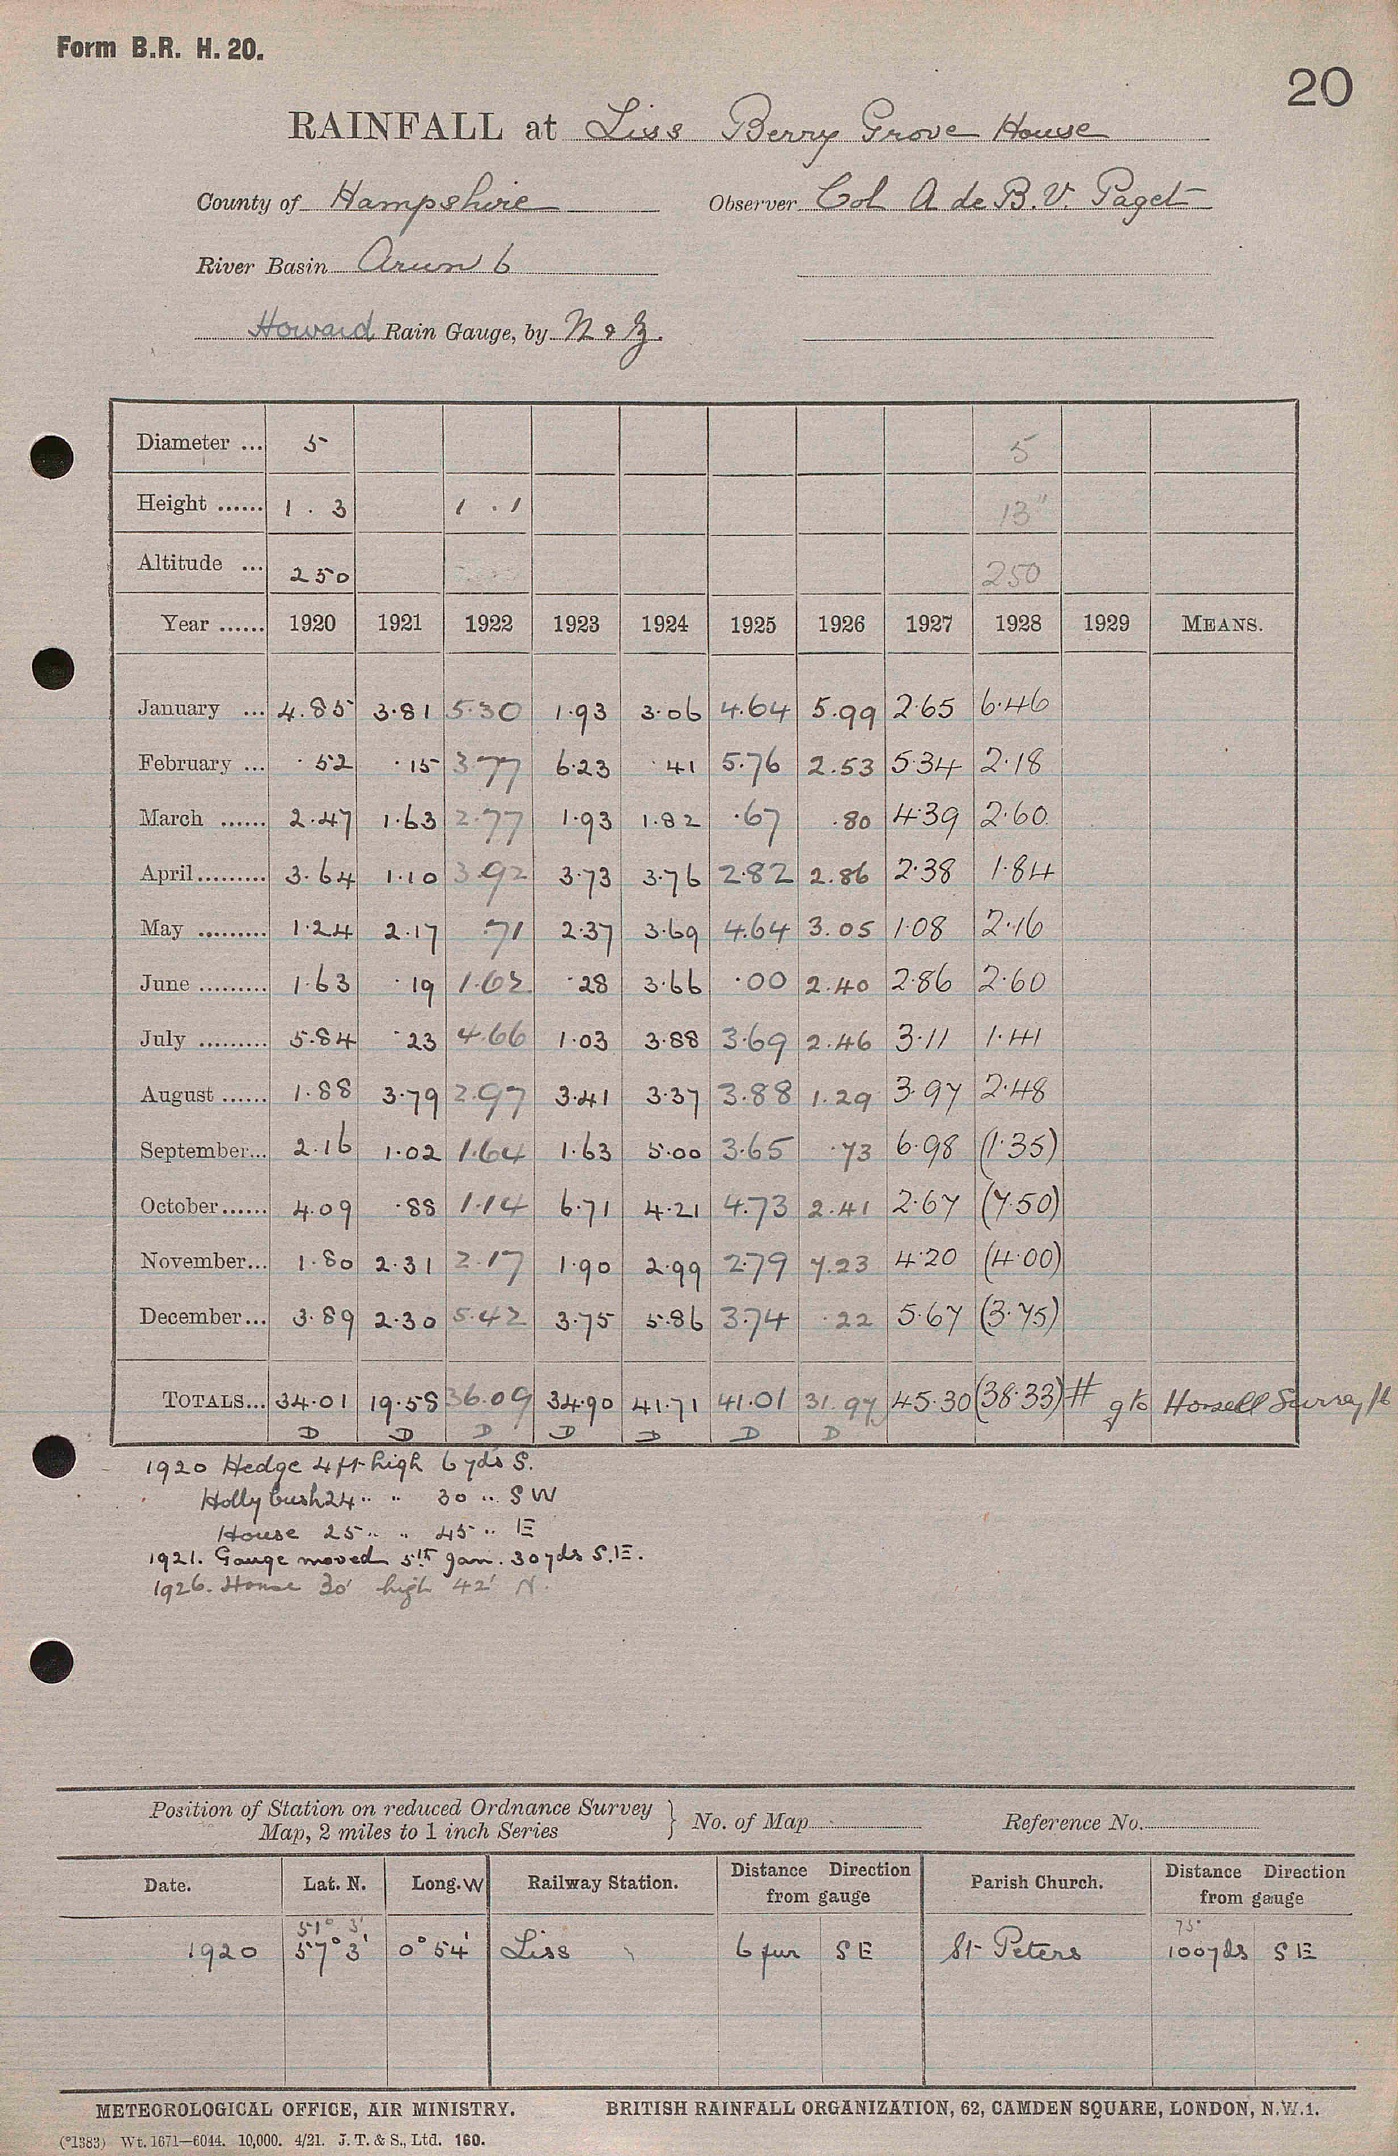 Form B.R. H. 20.
20
RAINFALL at Liss Berry Grove House
County of Hampshire Observer Col A de B.V. Paget
River Basin Arun 6
Howard Rain Gauge, by N & Z.
Diameter ... 5 5
Height ...... 1 . 3 1 . 1 13"
Altitude ... 250 250
Year ...... 1920 1921 1922 1923 1924 1925 1926 1927 1928 1929 MEANS.
January ... 4.85 3.81 5.30 1.93 3.06 4.64 5.99 2.65 6.46
February ... .52 .15 3.77 6.23 .41 5.76 2.53 5.34 2.18
March ...... 2.47 1.63 2.77 1.93 1.82 .67 .80 4.39 2.60
April ......... 3.64 1.10 3.92 3.73 3.76 2.82 2.86 2.38 1.84
May ......... 1.24 2.17 .71 2.37 3.69 4.64 3.05 1.08 2.16
June ......... 1.63 .19 1.62 .28 3.66 .00 2.40 2.86 2.60
July ......... 5.84 .23 4.66 1.03 3.88 3.69 2.46 3.11 1.41
August ...... 1.88 3.79 2.97 3.41 3.37 3.88 1.29 3.97 2.48
September... 2.16 1.02 1.64 1.63 5.00 3.65 .73 6.98 (1.35)
October...... 4.09 .88 1.14 6.71 4.21 4.73 2.41 2.67 (7.50)
November... 1.80 2.31 2.17 1.90 2.99 2.79 7.23 4.20 (4.00)
December... 3.89 2.30 5.42 3.75 5.86 3.74 .22 5.67 (3.75)
TOTALS... 34.01 19.58 36.09 34.90 41.71 41.01 31.97 45.30 (38.33) # g to Horsell Surrey
D D D D D D D
1920 Hedge 4 ft high 6 yds S.
Holly bush 24 " " 30 " SW
House 25 " " 45 " E
1921. Gauge moved 5th Jan. 30 yds S.E.
1926. House 30' high 42' N.
Position of Station on reduced Ordnance Survey
Map, 2 miles to 1 inch Series } No. of Map Reference No.
Date. Lat. N. Long. W Railway Station. Distance Direction from gauge Parish Church. Distance Direction from gauge
51° 3' 75°
1920 57° 3' 0° 54' Liss 6 fur SE St Peters 100 yds SE
METEOROLOGICAL OFFICE, AIR MINISTRY. BRITISH RAINFALL ORGANIZATION, 62, CAMDEN SQUARE, LONDON, N.W.1.
(*1383) Wt. 1671—6044. 10,000. 4/21. J. T. & S., Ltd. 160.